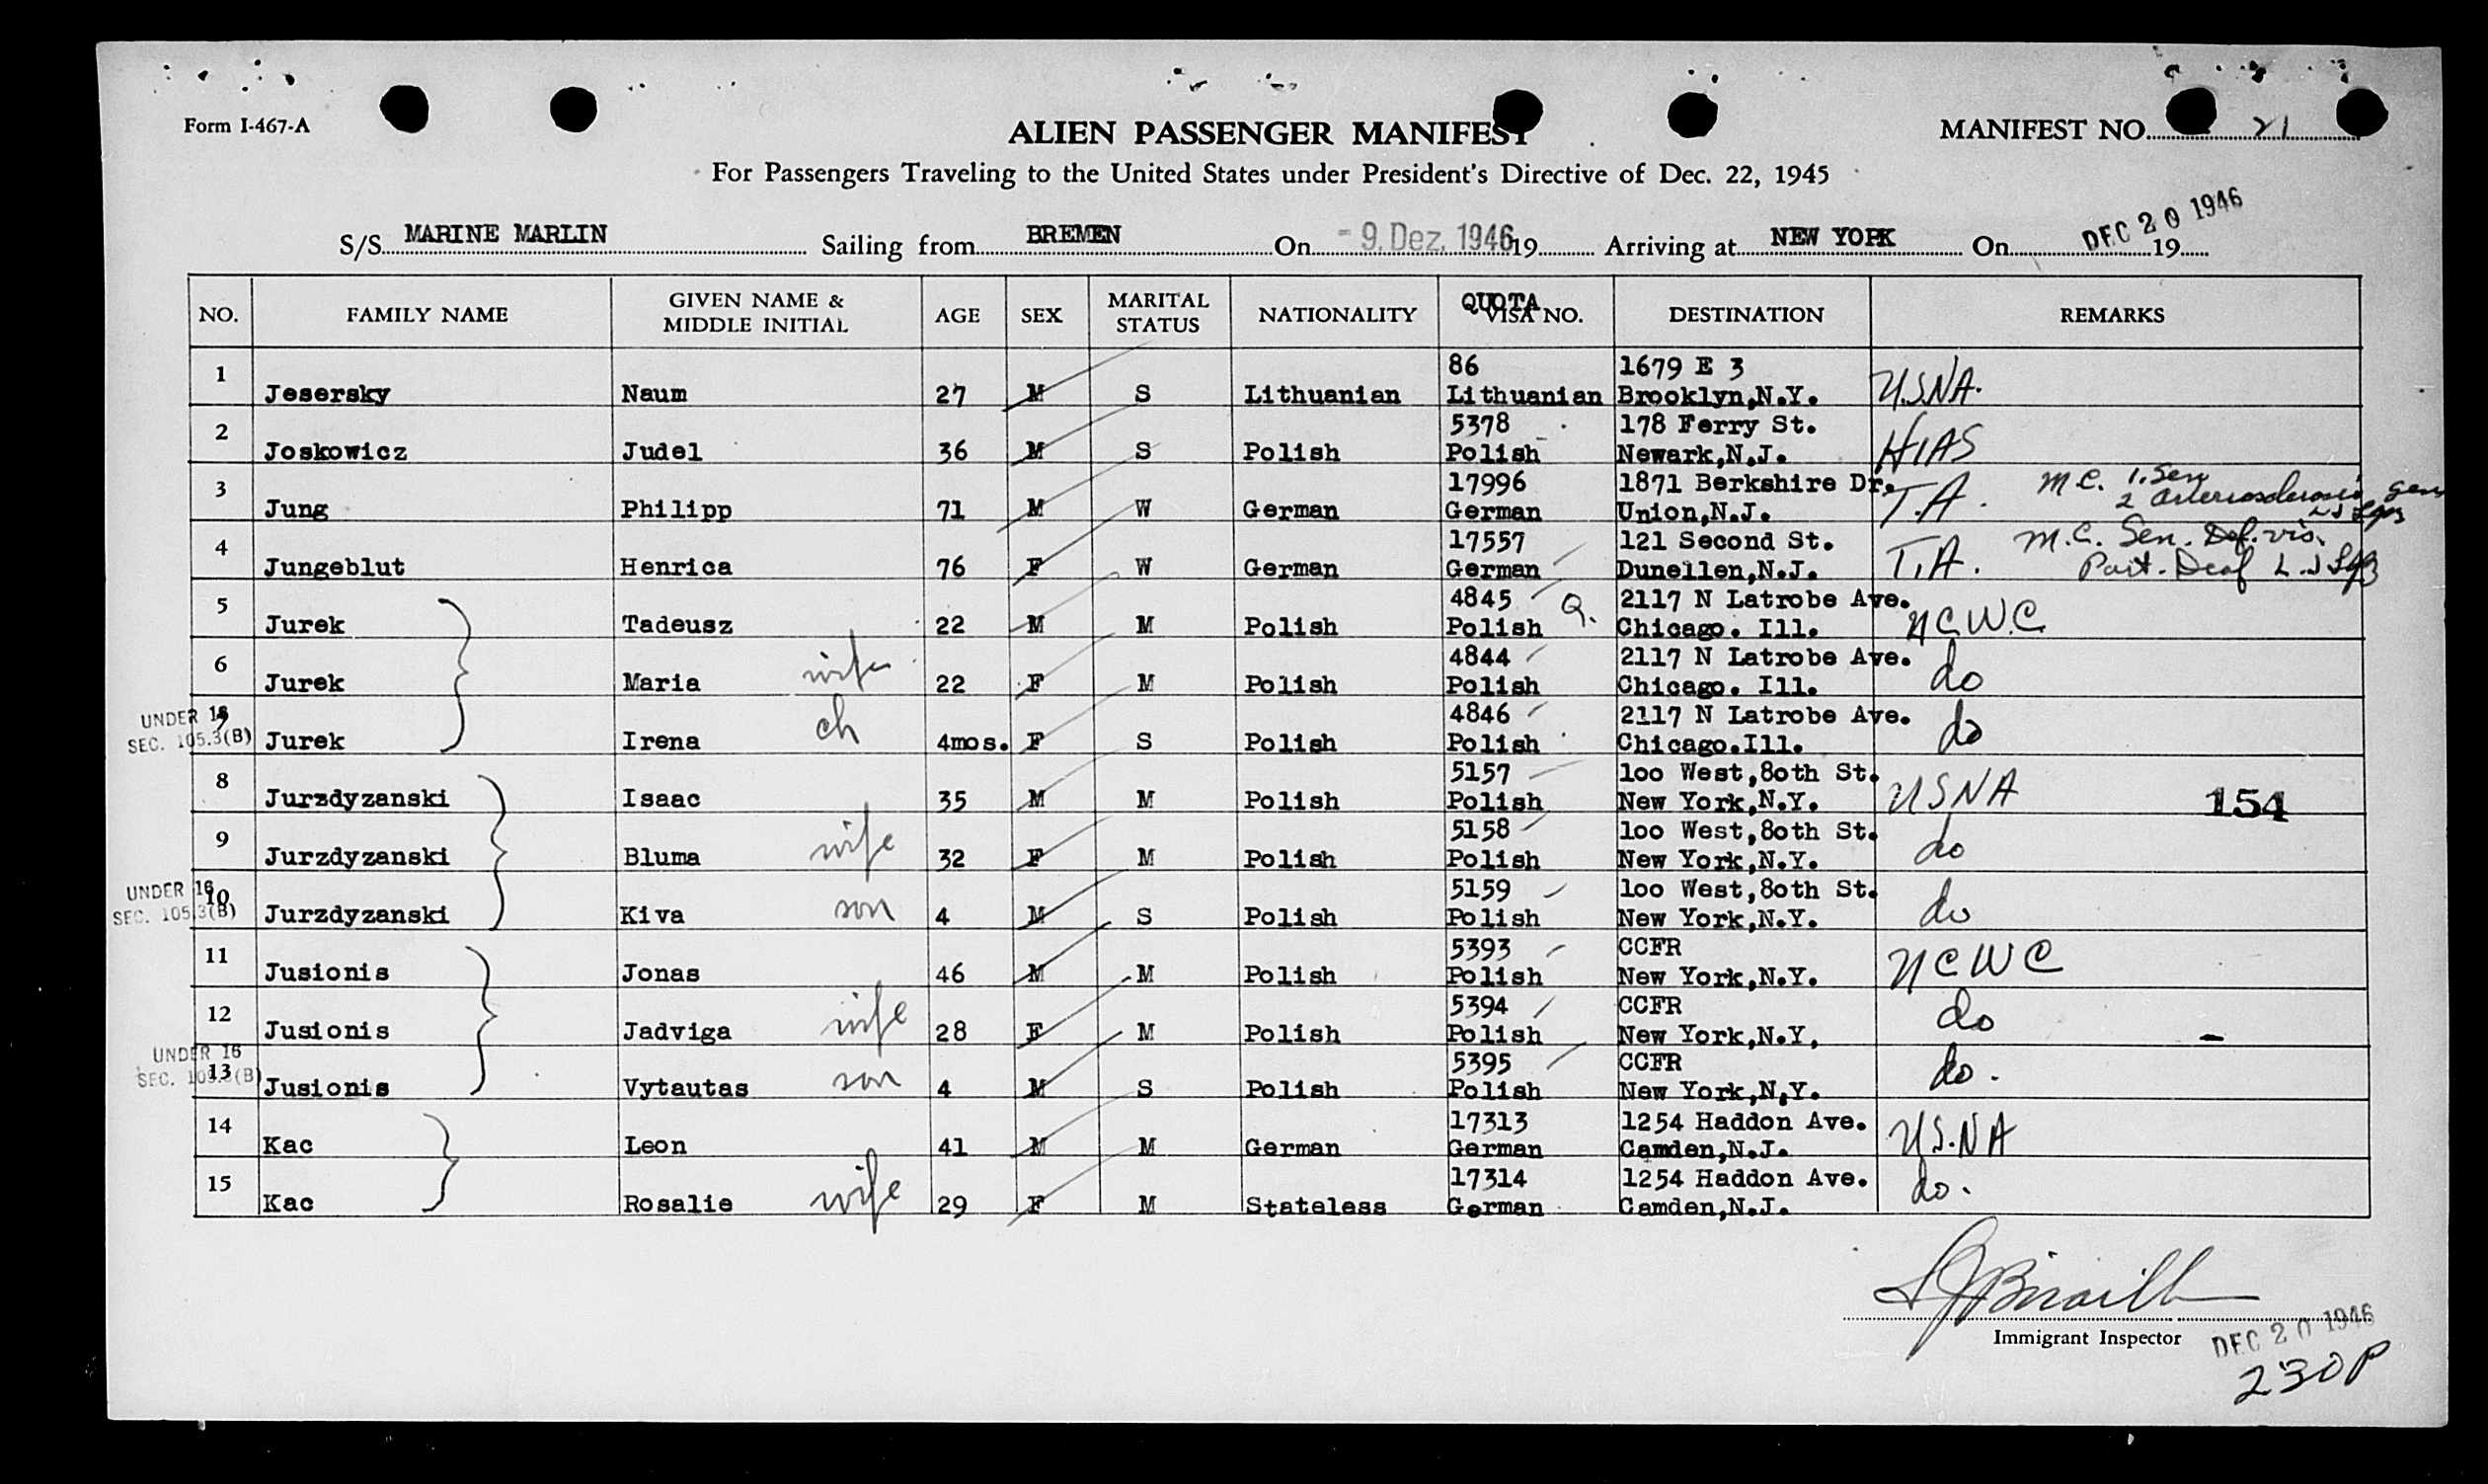 Form I-467-A
ALIEN PASSENGER MANIFEST
MANIFEST NO. 21
For Passengers Traveling to the United States under President's Directive of Dec. 22, 1945
S/S MARINE MARLIN Sailing from BREMEN On - 9. Dez. 1946 19 Arriving at NEW YORK On DEC 20 1946 19
NO. FAMILY NAME GIVEN NAME & MIDDLE INITIAL AGE SEX MARITAL STATUS NATIONALITY QUOTA VISA NO. DESTINATION REMARKS
86 1679 E 3
1 Jesersky Naum 27 M S Lithuanian Lithuanian Brooklyn,N.Y. U.S.N.A.
5378 178 Ferry St.
2 Joskowicz Judel 36 M S Polish Polish Newark,N.J. HIAS
17996 1871 Berkshire Dr. M.C. 1. Sen
3 Jung Philipp 71 M W German German Union,N.J. T.A. 2 arteriosclerosis gen
17557 121 Second St. M.C. Sen. Def. vis.
4 Jungeblut Henrica 76 F W German German Dunellen,N.J. T.A. Part. Deaf
4845 Q. 2117 N Latrobe Ave.
5 Jurek Tadeusz 22 M M Polish Polish Chicago. Ill. NCWC
4844 2117 N Latrobe Ave.
6 Jurek Maria wife 22 F M Polish Polish Chicago. Ill. do
UNDER 16 4846 2117 N Latrobe Ave.
SEC. 105.3(B) 7 Jurek Irena ch 4mos. F S Polish Polish Chicago.Ill. do
5157 100 West,80th St.
8 Jurzdyzanski Isaac 35 M M Polish Polish New York,N.Y. USNA 154
5158 100 West,80th St.
9 Jurzdyzanski Bluma wife 32 F M Polish Polish New York,N.Y. do
UNDER 16 5159 100 West,80th St.
SEC. 105.3(B) 10 Jurzdyzanski Kiva son 4 M S Polish Polish New York,N.Y. do
5393 CCFR
11 Jusionis Jonas 46 M M Polish Polish New York,N.Y. NCWC
5394 CCFR
12 Jusionis Jadviga wife 28 F M Polish Polish New York,N.Y, do
UNDER 16 5395 CCFR
SEC. 105.3(B) 13 Jusionis Vytautas son 4 M S Polish Polish New York,N,Y. do.
17313 1254 Haddon Ave.
14 Kac Leon 41 M M German German Camden,N.J. U.S.NA
17314 1254 Haddon Ave.
15 Kac Rosalie wife 29 F M Stateless German Camden,N.J. do.
Immigrant Inspector DEC 20 1946
230P